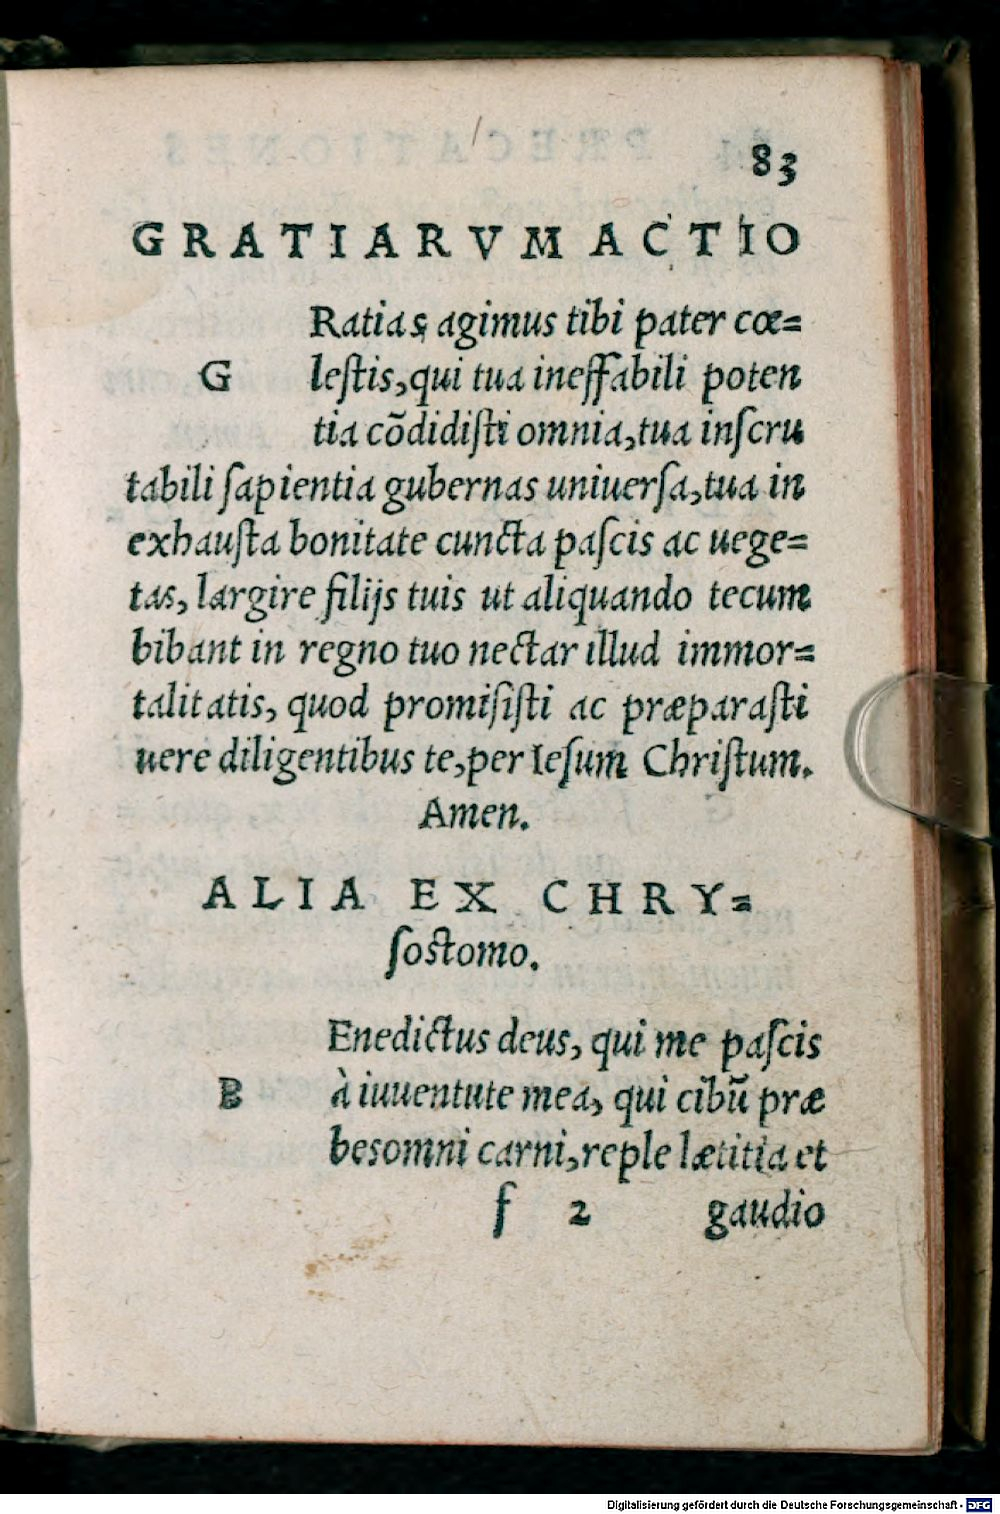 83
GRATIARVM ACTIO
Ratias agimus tibi pater cœ=
G leſtis, qui tua ineffabili poten
tia cõdidiſti omnia, tua inſcru
tabili ſapientia gubernas uniuerſa, tua in
exhauſta bonitate cuncta paſcis ac uege=
tas, largire filijs tuis ut aliquando tecum
bibant in regno tuo nectar illud immor=
talitatis, quod promiſiſti ac præparaſti
uere diligentibus te, per Ieſum Chriſtum.
Amen.
ALIA EX CHRY=
ſoſtomo.
Enedictus deus, qui me paſcis
B à iuuentute mea, qui cibũ præ
besomni carni, reple lætitia et
f 2 gaudio
Digitalisierung gefördert durch die Deutsche Forschungsgemeinschaft - DFG